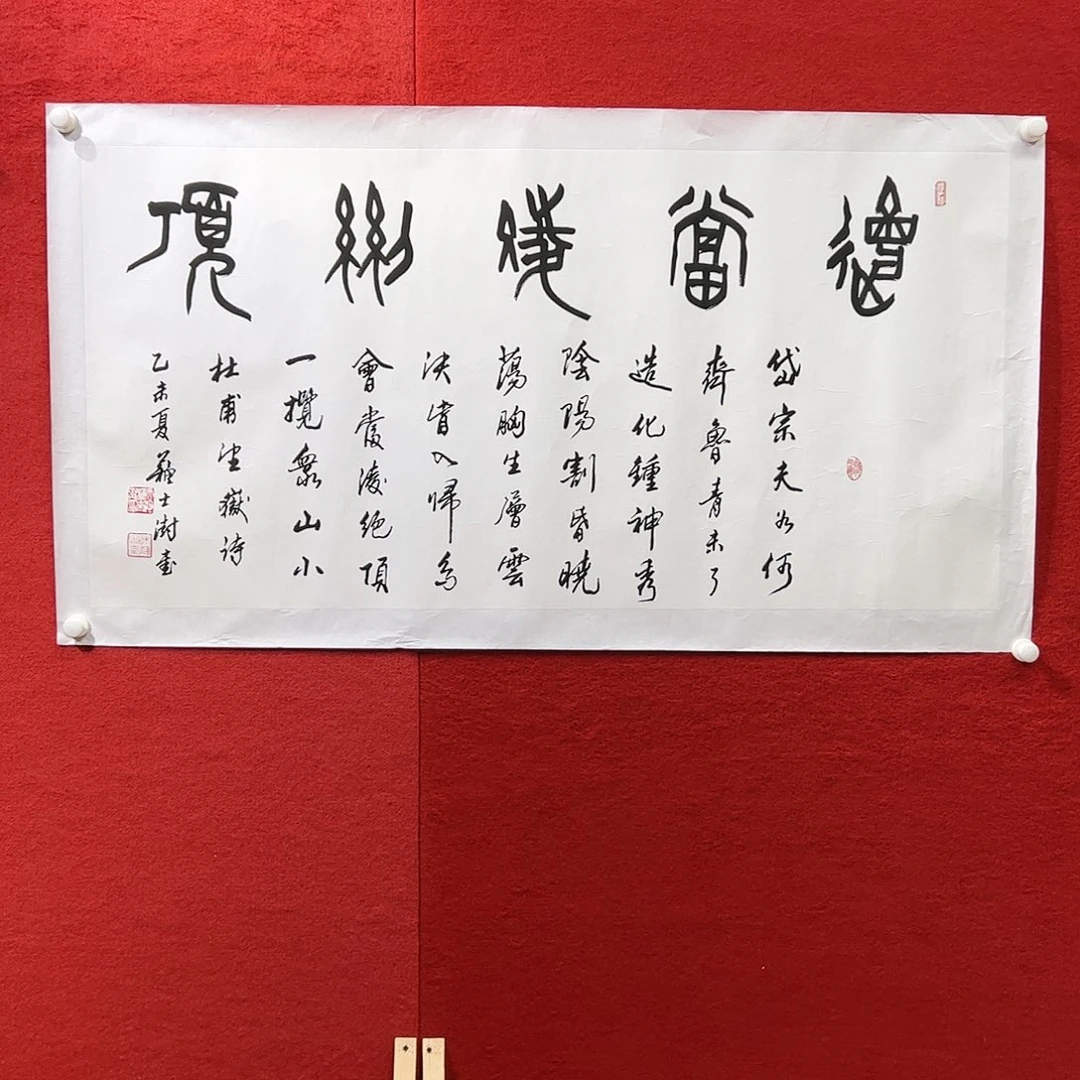 會當凌絕頂
岱宗夫如何
齊魯青未了
造化鍾神秀
陰陽割昏曉
蕩胸生層雲
決眥入歸鳥
會當淩絕頂
一攬衆山小
杜甫望嶽詩
乙未夏蘇士澍書